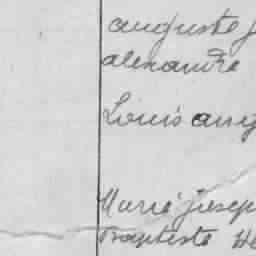 auguste j
alexandre
Louis aug
Marie josep
Baptiste He